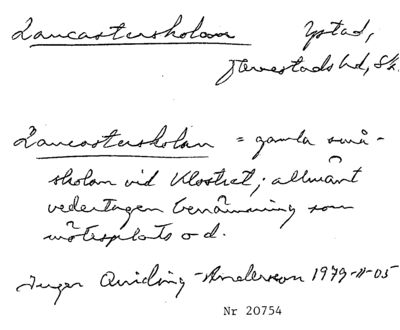 Lancasterskolan Ystad,
Järrestads hd, Sk.
Lancasterskolan = gamla små-
skolan vid Klostret; allmänt
vedertagen benämning som
mötesplats o d.
Inger Quiding-Anderson 1979-11-05
Nr 20754